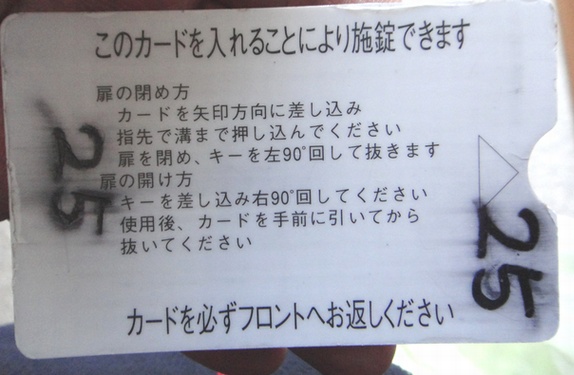 このカードを入れることにより施錠できます
扉の閉め方
カードを矢印方向に差し込み
指先で溝まで押し込んでください
扉を閉め、キーを左90°回して抜きます
扉の開け方
キーを差し込み右90°回してください
使用後、カードを手前に引いてから
抜いてください
カードを必ずフロントへお返しください
25
25